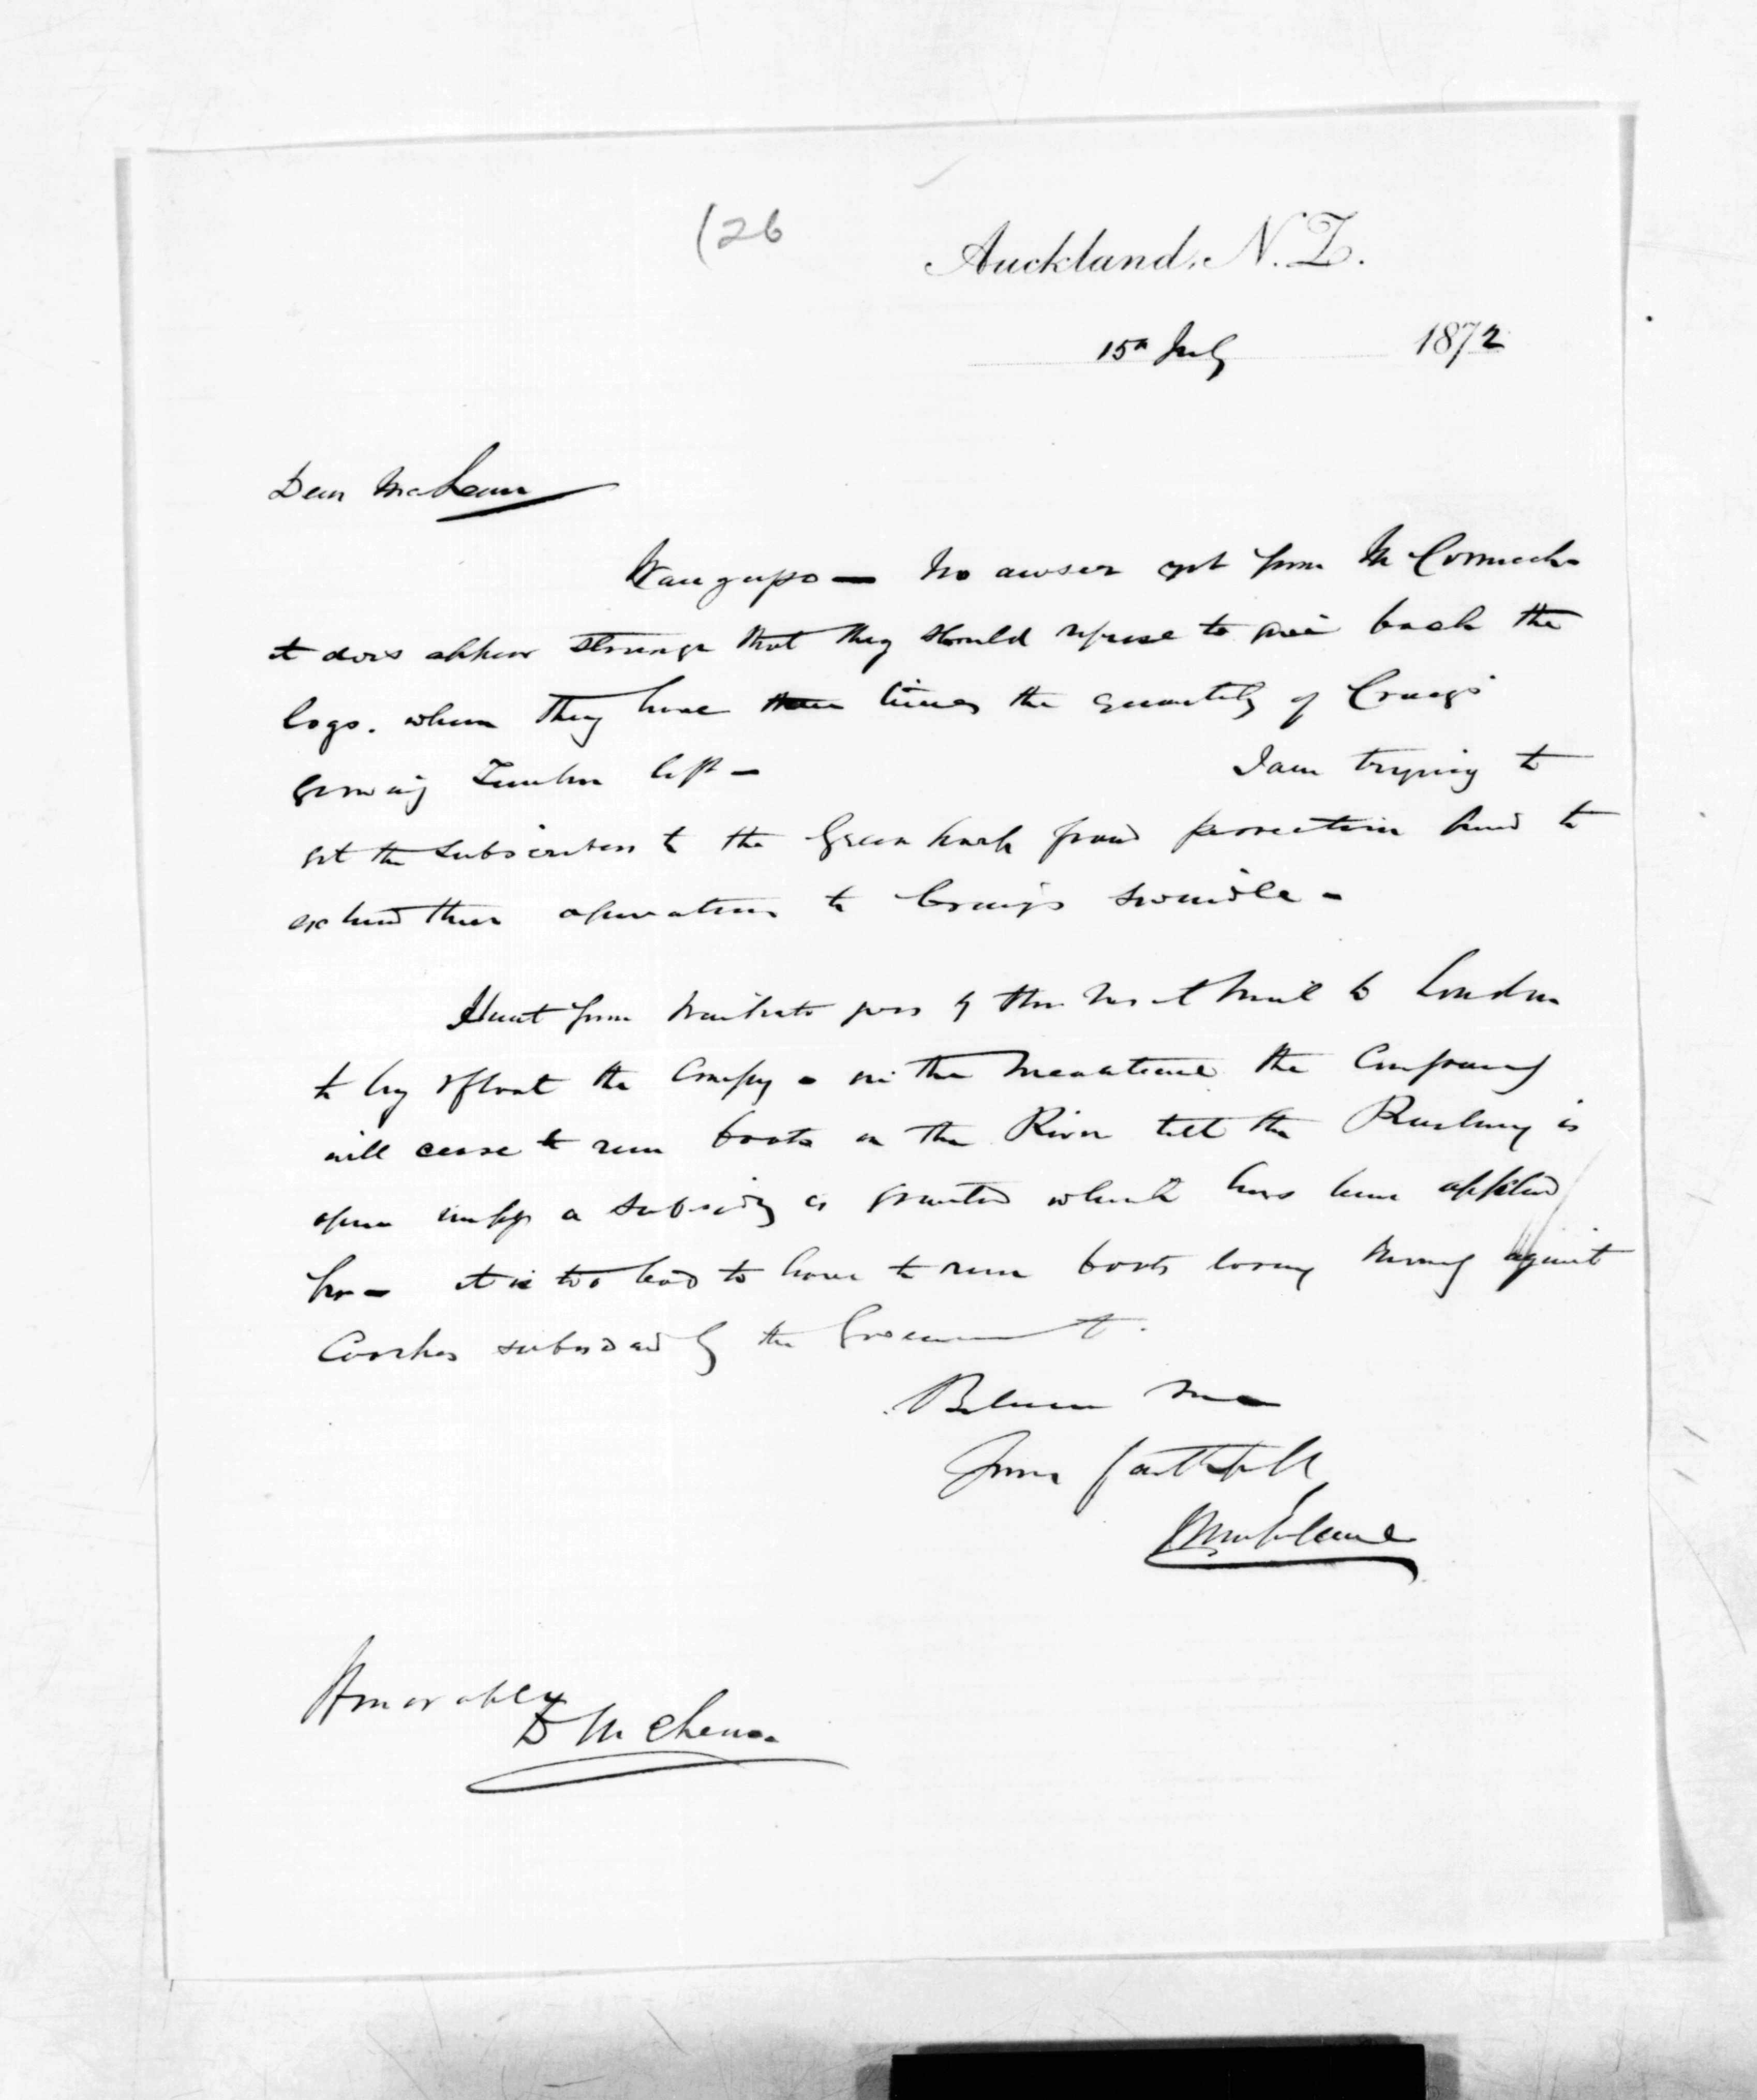 (26
Auckland, N.Z.
15th July 1872
Dear McLean
No answer yet from McCormick
it does appear strange that they should refuse to give back the
logs. when they have three times the quantity of Craigs
growing Timber left -
I am trying to
get the subscribers to the Green back fraud prosecution fund to
extend their operations to Craigs swindle -
Hunt from Waikato goes by the next Mail to London
to try & float the Company - in the meantime the Company
will cease to run boats on the River till the Railway is
open unless a subsidy is granted which has been applied
for - it is too bad to have to run boats losing money against
Coaches subsidized by the Government.
Believe me
Yours faithfully
Honorable
D McLean